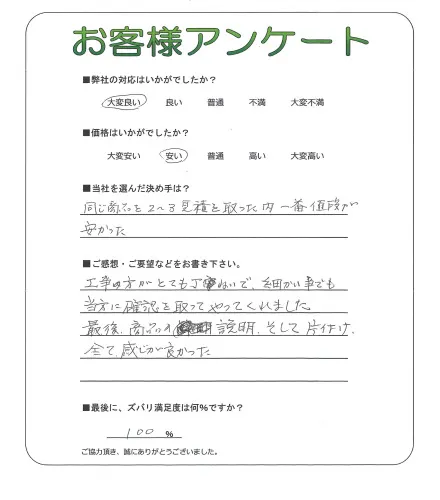 お客様アンケート
■弊社の対応はいかがでしたか？
大変良い 良い 普通 不満 大変不満
■価格はいかがでしたか？
大変安い 安い 普通 高い 大変高い
■当社を選んだ決め手は？
同じ商品を2〜3見積を取った内一番値段が
安かった
■ご感想・ご要望などをお書き下さい。
工事の方がとても丁寧で、細かい事でも
当方に確認を取ってやってくれました
最後、商品の説明、そして片付け、
全て感じが良かった
■最後に、ズバリ満足度は何%ですか？
100 %
ご協力頂き、誠にありがとうございました。